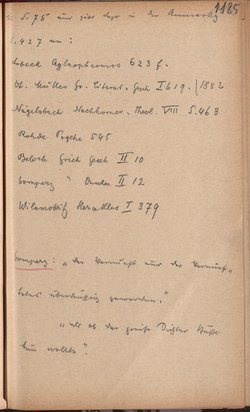 1185
S. 75 und gibt dazu in der Anmerkg
S. 427 an:
Lobeck Aglaophamos 623 f.
Ot. Müller Gr. Literat. Gesch I 619. } 1882
Nägelsbach Nachhomer. Theol. VIII S. 463
Rohde Psyche 545
Beloch Griech Gesch II 10
Gomperz " Denker II 12
Wilamowitz Herakles I 379
Gomperz: „der Vernunft und des Vernunft-
überdrüssig geworden."
„als ob der greise Dichter Buße
tun wollte".